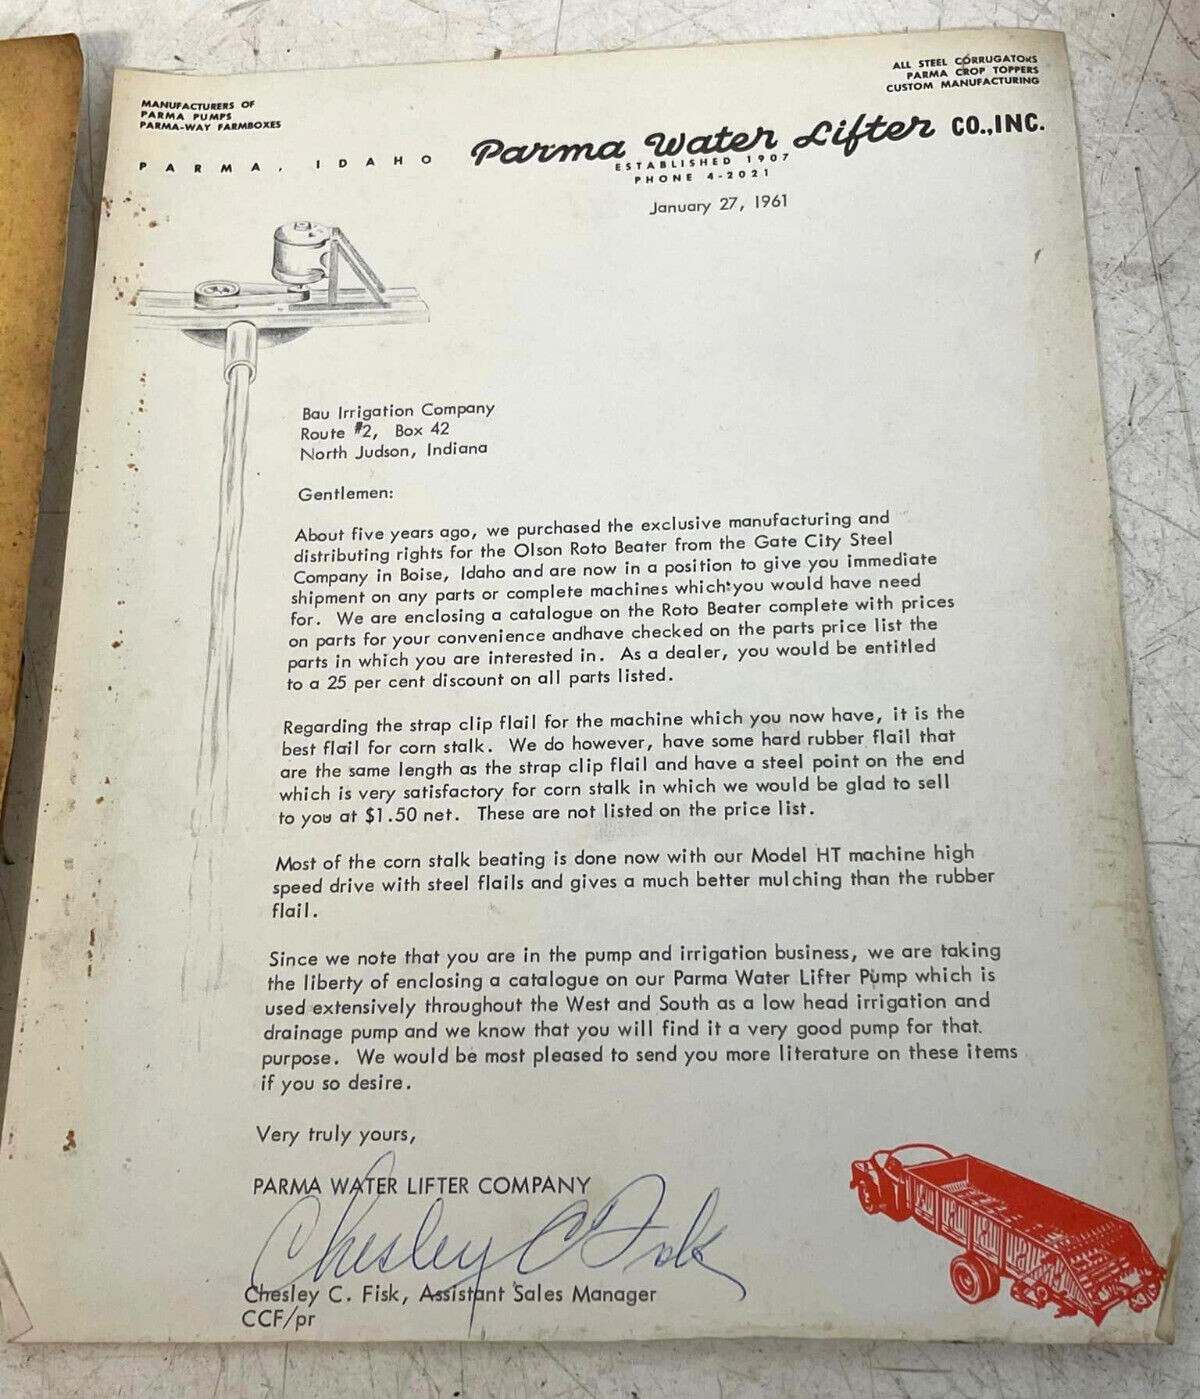 MANUFACTURERS OF
PARMA PUMPS
PARMA-WAY FARMBOXES
ALL STEEL CORRUGATORS
PARMA CROP TOPPERS
CUSTOM MANUFACTURING
PARMA, IDAHO
Parma Water Lifter CO., INC.
ESTABLISHED 1907
PHONE 4-2021
January 27, 1961
Bau Irrigation Company
Route #2, Box 42
North Judson, Indiana
Gentlemen:
About five years ago, we purchased the exclusive manufacturing and
distributing rights for the Olson Roto Beater from the Gate City Steel
Company in Boise, Idaho and are now in a position to give you immediate
shipment on any parts or complete machines which you would have need
for. We are enclosing a catalogue on the Roto Beater complete with prices
on parts for your convenience andhave checked on the parts price list the
parts in which you are interested in. As a dealer, you would be entitled
to a 25 per cent discount on all parts listed.
Regarding the strap clip flail for the machine which you now have, it is the
best flail for corn stalk. We do however, have some hard rubber flail that
are the same length as the strap clip flail and have a steel point on the end
which is very satisfactory for corn stalk in which we would be glad to sell
to you at $1.50 net. These are not listed on the price list.
Most of the corn stalk beating is done now with our Model HT machine high
speed drive with steel flails and gives a much better mulching than the rubber
flail.
Since we note that you are in the pump and irrigation business, we are taking
the liberty of enclosing a catalogue on our Parma Water Lifter Pump which is
used extensively throughout the West and South as a low head irrigation and
drainage pump and we know that you will find it a very good pump for that
purpose. We would be most pleased to send you more literature on these items
if you so desire.
Very truly yours,
PARMA WATER LIFTER COMPANY
Chesley C Fisk
Chesley C. Fisk, Assistant Sales Manager
CCF/pr